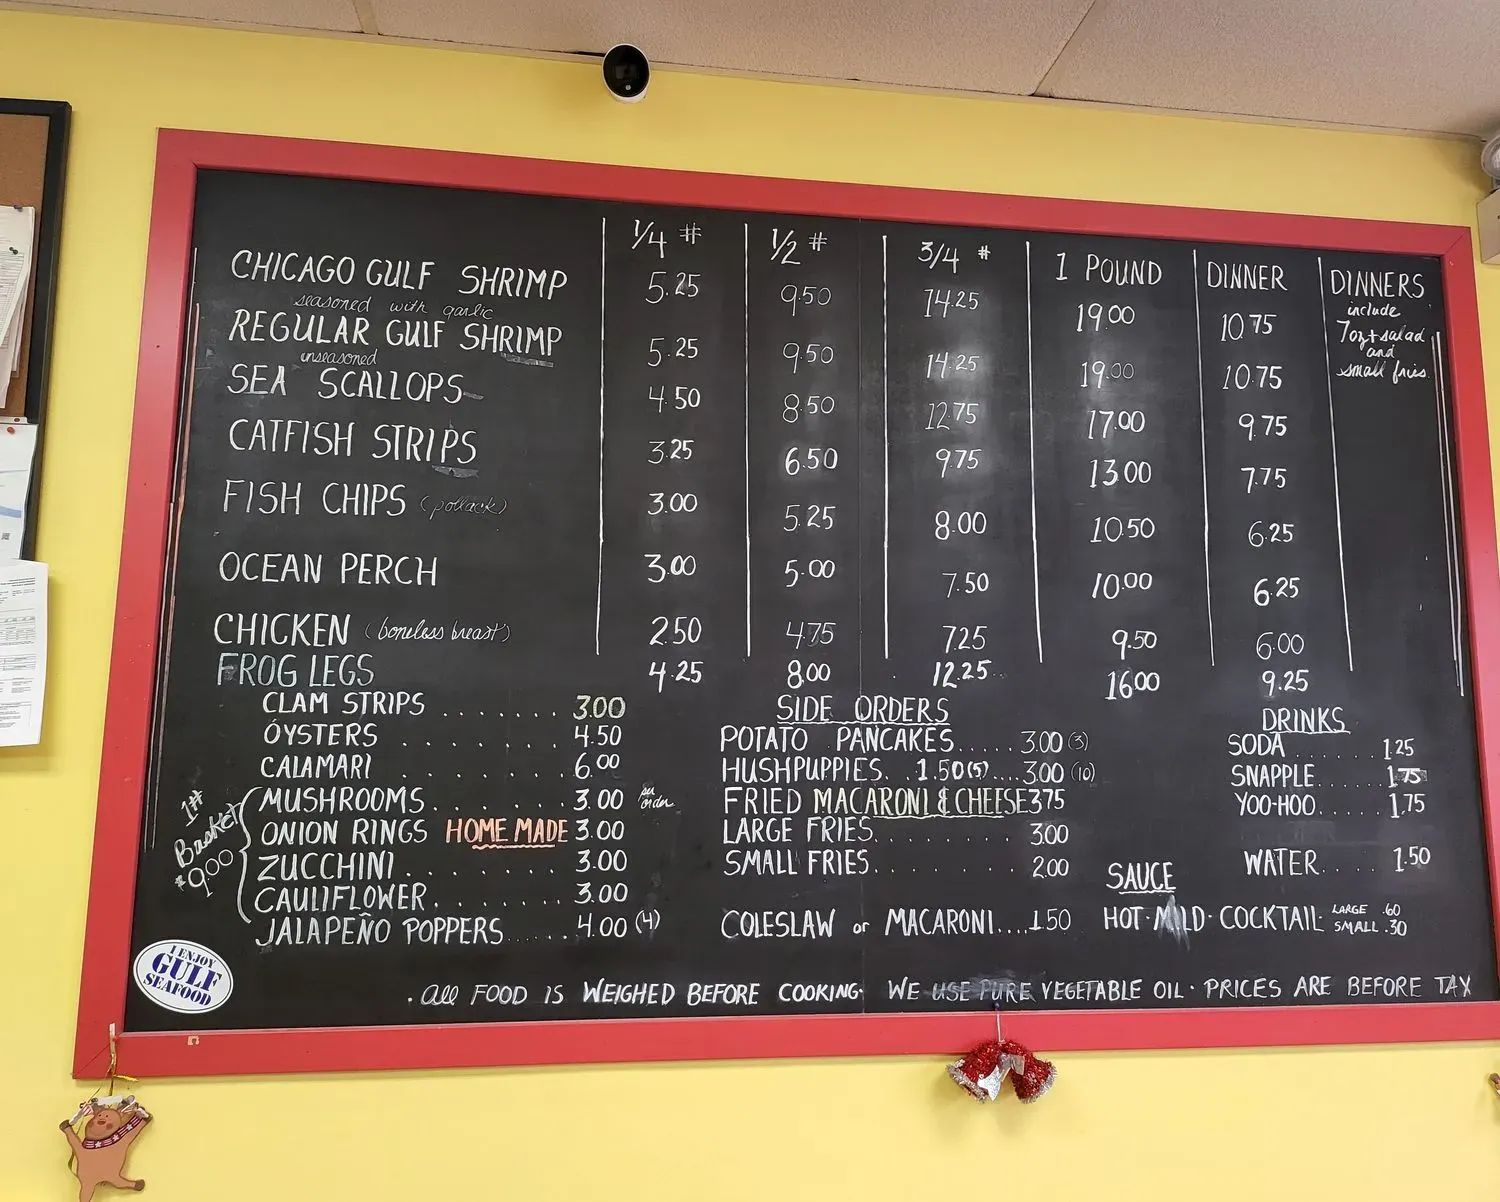 1/4 # 1/2 # 3/4 # 1 POUND DINNER DINNERS
include
7oz + salad
and
small fries
CHICAGO GULF SHRIMP 5.25 9.50 14.25 19.00 10.75
seasoned with garlic
REGULAR GULF SHRIMP 5.25 9.50 14.25 19.00 10.75
unseasoned
SEA SCALLOPS 4.50 8.50 12.75 17.00 9.75
CATFISH STRIPS 3.25 6.50 9.75 13.00 7.75
FISH CHIPS (pollack) 3.00 5.25 8.00 10.50 6.25
OCEAN PERCH 3.00 5.00 7.50 10.00 6.25
CHICKEN (boneless breast) 2.50 4.75 7.25 9.50 6.00
FROG LEGS 4.25 8.00 12.25 16.00 9.25
CLAM STRIPS ....... 3.00
OYSTERS ...... 4.50
CALAMARI ...... 6.00
MUSHROOMS ...... 3.00 per order
ONION RINGS HOME MADE 3.00
ZUCCHINI ....... 3.00
CAULIFLOWER ...... 3.00
JALAPEÑO POPPERS ..... 4.00 (4)
1# Basket
$9.00
SIDE ORDERS
POTATO PANCAKES..... 3.00 (3)
HUSHPUPPIES. . 1.50 (5) .... 3.00 (10)
FRIED MACARONI & CHEESE 3.75
LARGE FRIES........ 3.00
SMALL FRIES........ 2.00
COLESLAW or MACARONI....1.50
DRINKS
SODA ..... 1.25
SNAPPLE..... 1.75
YOO-HOO..... 1.75
WATER.... 1.50
SAUCE
HOT · MILD · COCKTAIL LARGE .60
SMALL .30
I ENJOY
GULF
SEAFOOD
· All FOOD IS WEIGHED BEFORE COOKING · WE USE PURE VEGETABLE OIL · PRICES ARE BEFORE TAX